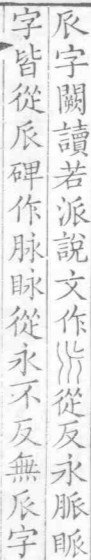 𠂢字闕讀若派說文作𠂢從反永脈眽
字皆從𠂢碑作脉眿從永不反無𠂢字